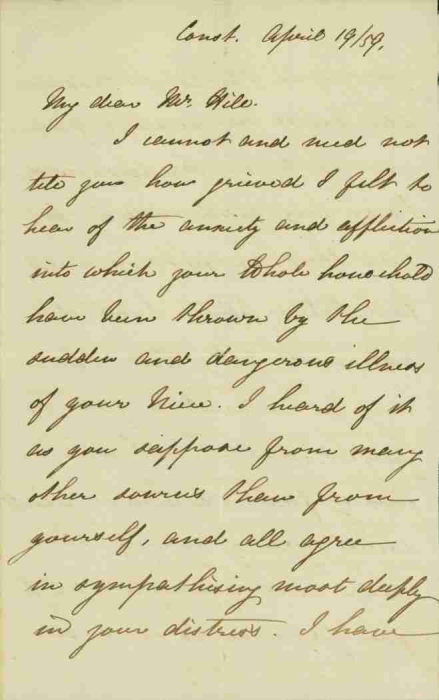 Const. April 19/59.
My dear Mr. Hill.
I cannot and need not
tell you how grieved I felt to
hear of the anxiety and affliction
into which your whole household
have been thrown by the
sudden and dangerous illness
of your Niece. I heard of it
as you suppose from many
other sources than from
yourself, and all agree
in sympathising most deeply
in your distress. I have